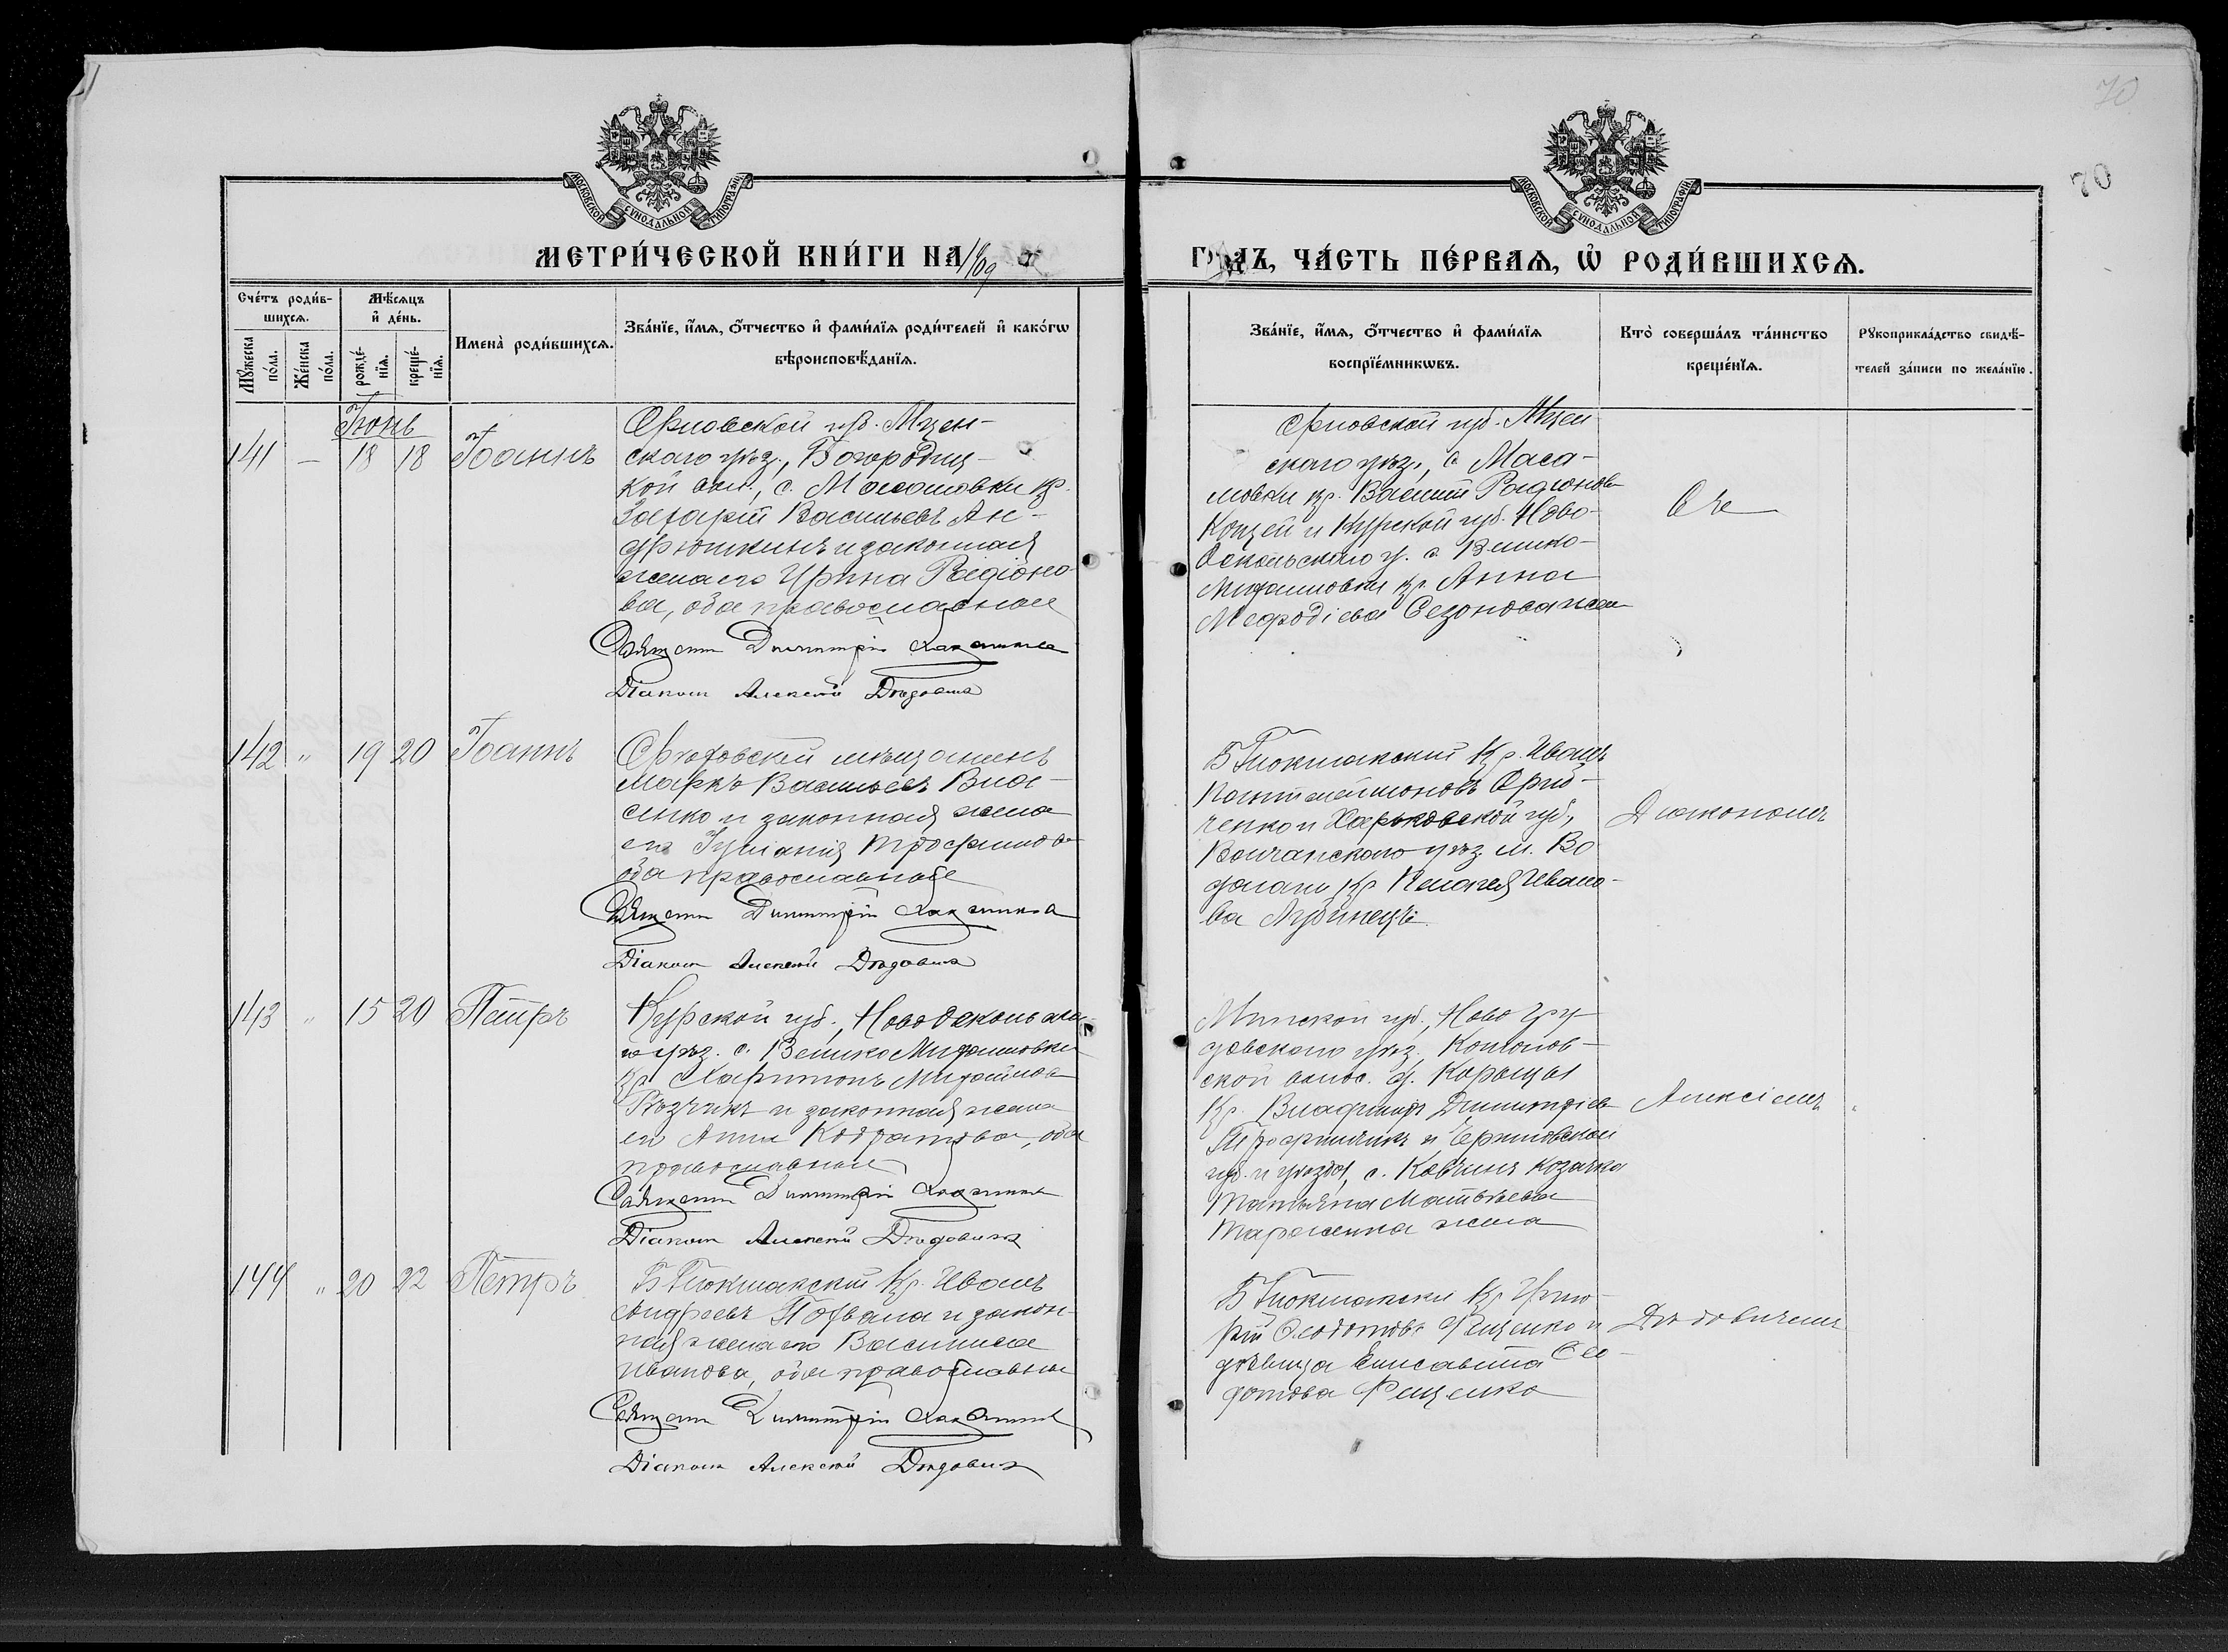 70
70
МОСКОВСКОЙ СѴНОДАЛЬНОЙ ТИПОГРАФІИ
МОСКОВСКОЙ СѴНОДАЛЬНОЙ ТИПОГРАФІИ
МЕТРИ́ЧЕСКОЙ КНИ́ГИ НА 1909
ГОДЪ, ЧА́СТЬ ПЕ́РВАѦ, Ѡ҆ РОДИ́ВШИХСѦ.
Сче́тъ роди́в-
шихсѧ.
Мꙋ́жеска по́ла.
Же́нска по́ла.
Мѣ́сѧцъ
и҆ де́нь.
рожде́-
нїѧ.
креще́-
нїѧ.
Имена̀ роди́вшихсѧ.
Зва́нїе, и҆́мѧ, ѻ҆́тчество и҆ фами́лїѧ роди́телей и҆ како́гѡ
вѣроисповѣ́данїѧ.
Зва́нїе, и҆́мѧ, ѻ҆́тчество и҆ фами́лїѧ
воспрїе́мникѡвъ.
Кто̀ соверша́лъ та́инство
креще́нїѧ.
Рꙋкоприкла́дство свидѣ́-
телей за́писи по жела́нїю.
Іюнь
141 — 18 18 Іоаннъ
Орловской губ. Мцен-
скаго уѣз., Богородиц-
кой вол., с. Масаловки кр.
Захарій Васильевъ Ан-
дрюшкинъ и законная
жена его Ирина Радіоно-
ва, оба православные
Священ Димитрій
Діакон Алексѣй Дѣдовичъ
Орловской губ. Мцен
скаго уѣз., с. Маса-
ловки кр. Василій Радіоновъ
Концей и Курской губ. Ново-
Оскольскаго у. с. Велико-
Михаиловки кр. Анна
Меѳодіева Сезонова
142 " 19 20 Іоаннъ
Орѣховскій мѣщанинъ
Маркъ Васильевъ Вла-
сенко и законная жена
его Іуліанія Трофимова
оба православные
Священ Димитрій
Діакон Алексѣй Дѣдовичъ
Б Токмакскій кр. Иванъ
Пантелеимоновъ
ченко и Харьковской губ,
Волчанскаго уѣз. м.
кр Пелагея Ивано-
ва Лубинецъ
Діакономъ
143 " 15 20 Петръ
Курской губ., Новооскольска
го уѣз. с. ВеликоМихаиловки
кр Харитонъ Михаиловъ
Рѣзникъ и законная жена
его Анна Кодратова, оба
православные
Священ Димитрій
Діакон Алексѣй Дѣдовичъ
Минской губ., Ново Гру
довскаго уѣз.,
ской волос. д.
кр. Владиміръ Димитріев
Трофимчикъ и Черниговской
губ. и уѣзда, с. Ковчинъ козачка
Татьяна Матвѣева
жена
Алексіемъ
144 " 20 22 Петръ
Б Токмакскій кр. Иванъ
Андреевъ и закон-
ная жена его Василиса
Иванова, оба православные
Священ Димитрій
Діакон Алексѣй Дѣдовичъ
Б Токмакскій кр Григо-
рій Ѳеодотовъ Фещенко и
дѣвица Елисавета Ѳео-
дотова Фещенко
Дѣдовичемъ